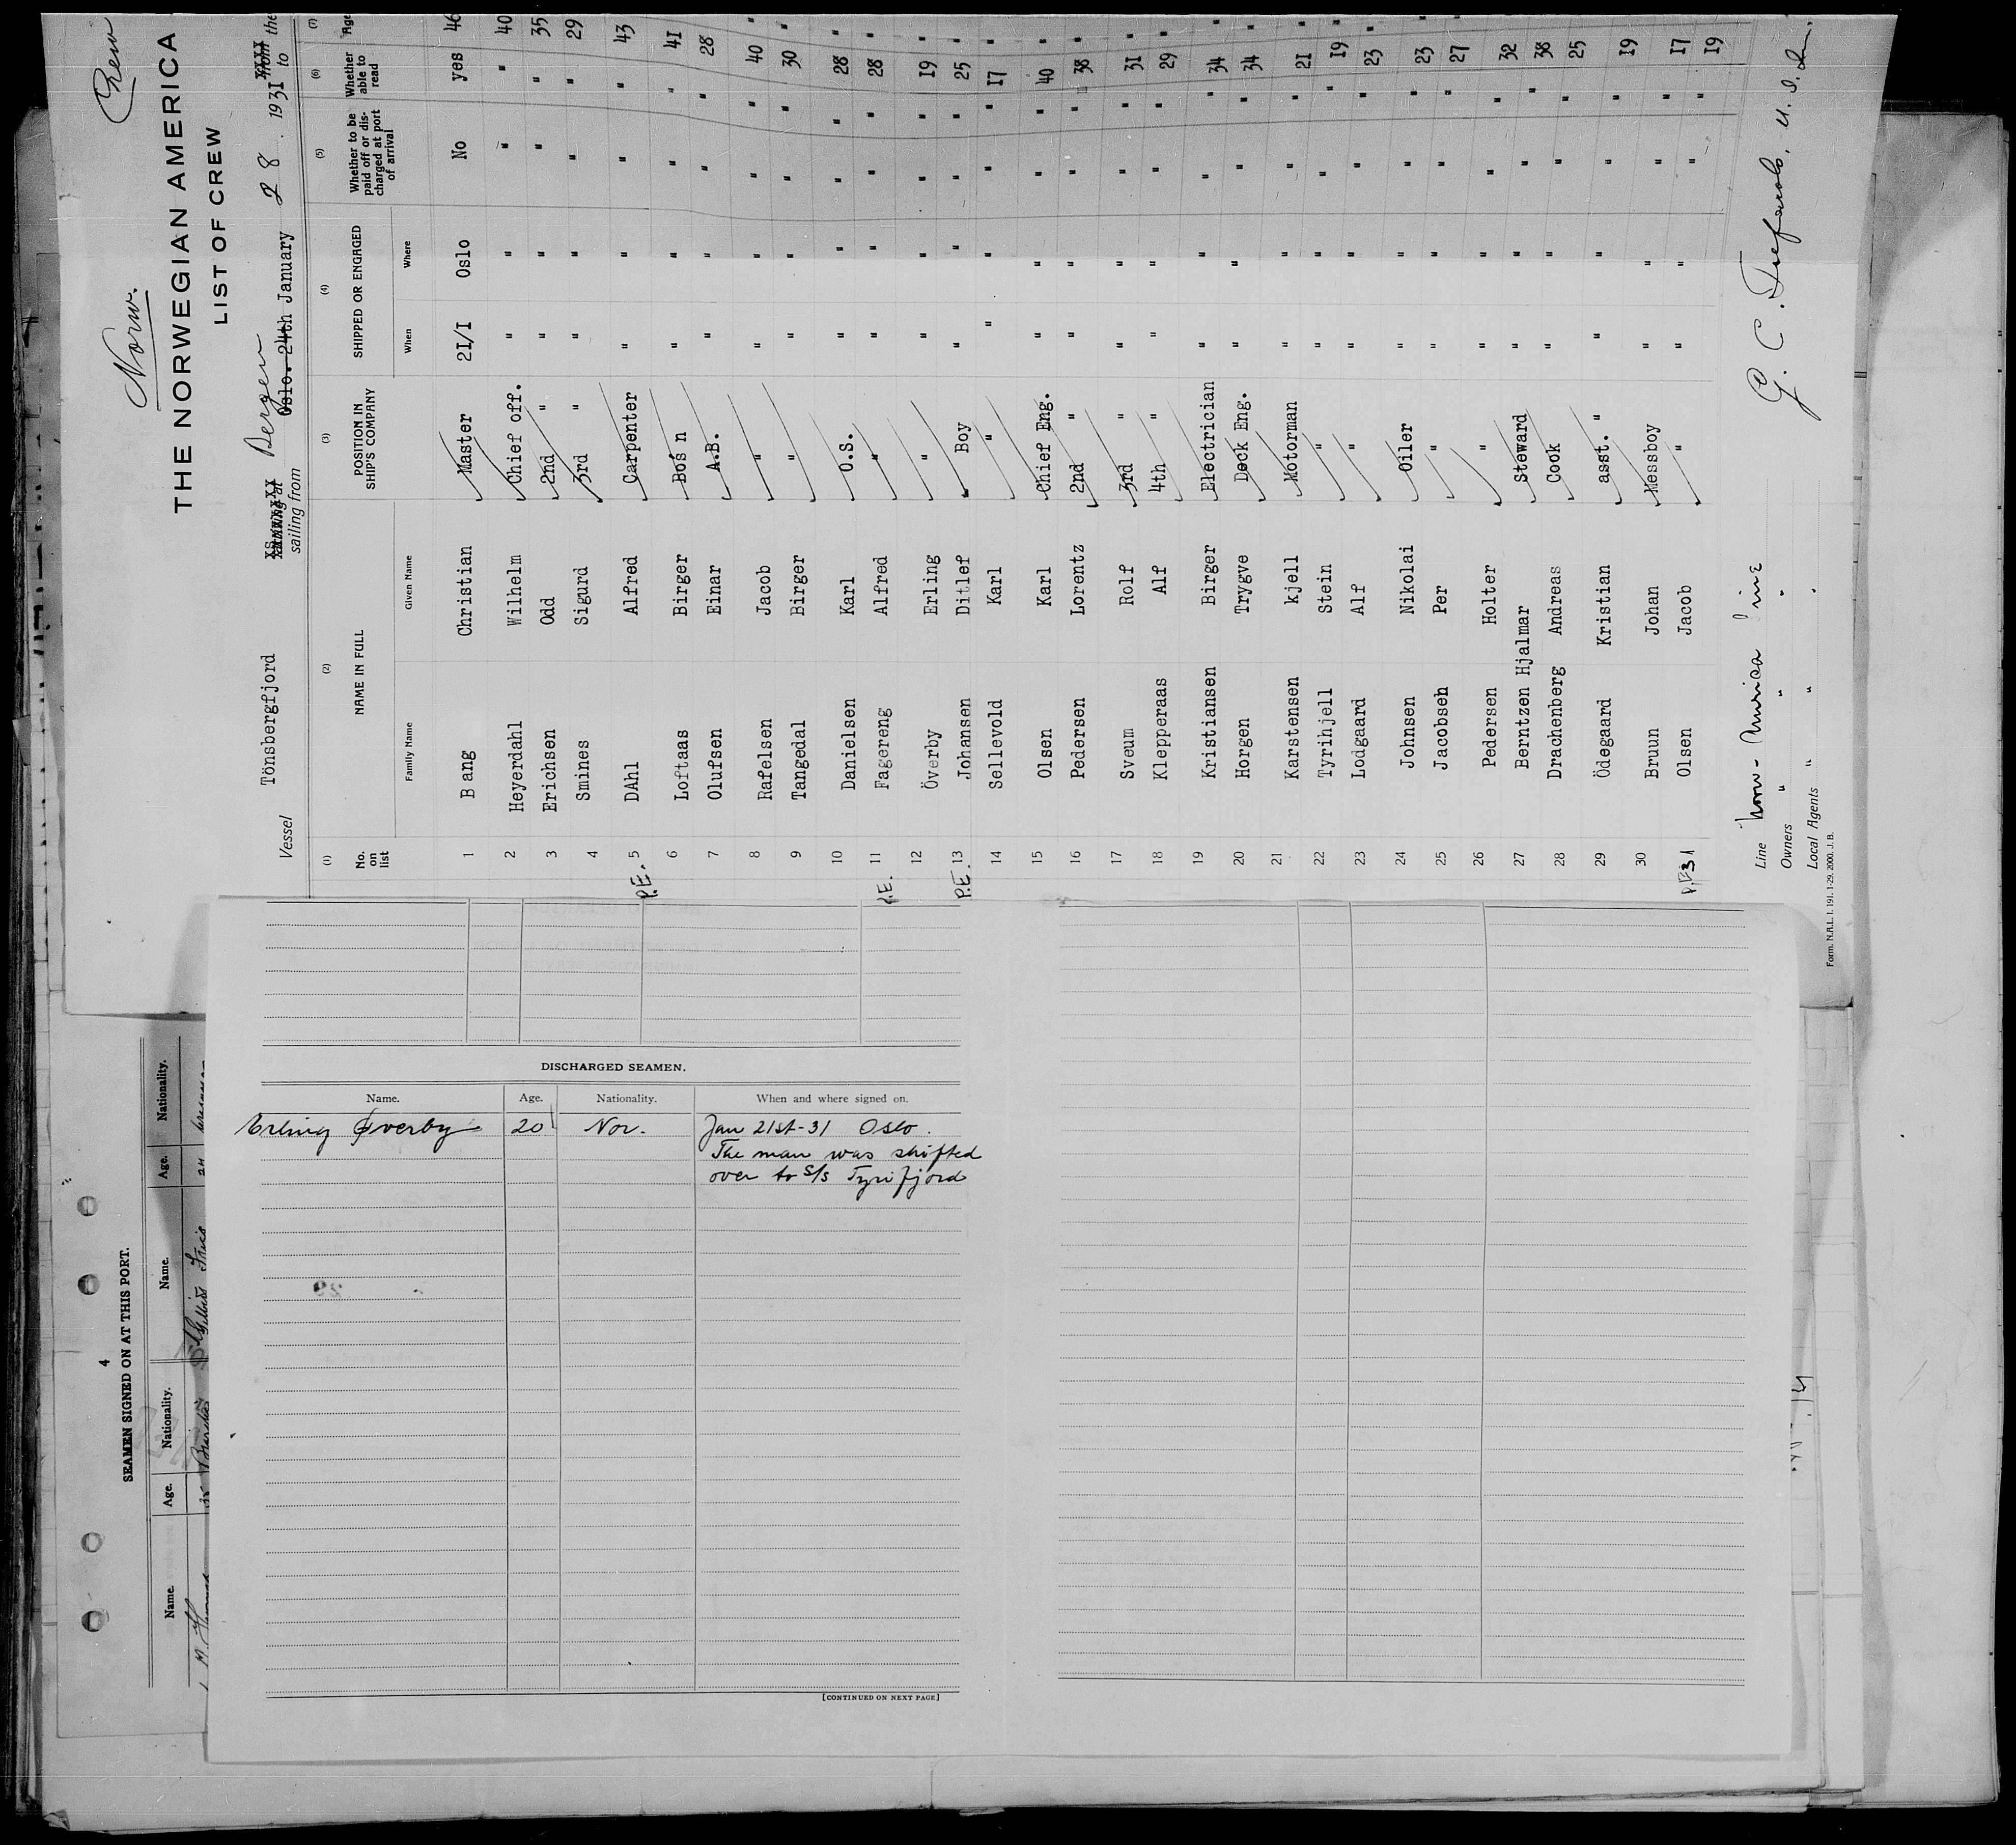 Norw.
Crew
THE NORWEGIAN AMERICA
LIST OF CREW
Vessel Tönsbergfjord sailing from Bergen Oslo. 24th January 28. 1931 to the
(1) (2) (3) (4) (5) (6) (7)
No. on list NAME IN FULL POSITION IN SHIP'S COMPANY SHIPPED OR ENGAGED Whether to be paid off or discharged at port of arrival Whether able to read Age
Family Name Given Name When Where
1 B ang Christian Master 2I/I Oslo No yes 46
2 Heyerdahl Wilhelm Chief off. " " " " 40
3 Erichsen Odd 2nd " " " " " 35
4 Smines Sigurd 3rd " " " " " 29
P.E. 5 DAhl Alfred Carpenter " " " " 43
6 Loftaas Birger Bo's n " " " " 41
7 Olufsen Einar A.B. " " " " 28
8 Rafelsen Jacob " " " " " 40
9 Tangedal Birger " " " " " 30
10 Danielsen Karl O.S. " " " " 28
P.E. 11 Fagereng Alfred " " " " " 28
12 Överby Erling " " " " " I9
P.E. 13 Johansen Ditlef Boy " " " " 25
14 Sellevold Karl " " " " " I7
15 Olsen Karl Chief Eng. " " " " 40
16 Pedersen Lorentz 2nd " " " " " 38
17 Sveum Rolf 3rd " " " " " 31
18 Klepperaas Alf 4th " " " " " 29
19 Kristiansen Birger Electrician " " " " 34
20 Horgen Trygve Deck Eng. " " " " 34
21 Karstensen kjell Motorman " " " " 21
22 Tyrihjell Stein " " " " " I9
23 Lodgaard Alf " " " " " 23
24 Johnsen Nikolai Oiler " " " " 23
25 Jacobseh Per " " " " " 27
26 Pedersen Holter " " " " " 32
27 Berntzen Hjalmar Steward " " " " 38
28 Drachenberg Andreas Cook " " " " 25
29 Ödegaard Kristian asst. " " " " " I9
30 Bruun Johan Messboy " " " " I7
31 Olsen Jacob " " " " " I9
Line Norw- America Line
Owners " " "
Local Agents " " "
Form. N.A.L. I. 191. 1-29. 2000. J. B.
DISCHARGED SEAMEN.
Name. Age. Nationality. When and where signed on.
Erling Øverby 20 Nor. Jan 21st-31 Oslo.
The man was shifted
over to S/S Tyrifjord
[CONTINUED ON NEXT PAGE]
4
SEAMEN SIGNED ON AT THIS PORT.
Name. Age. Nationality. Name. Age. Nationality.